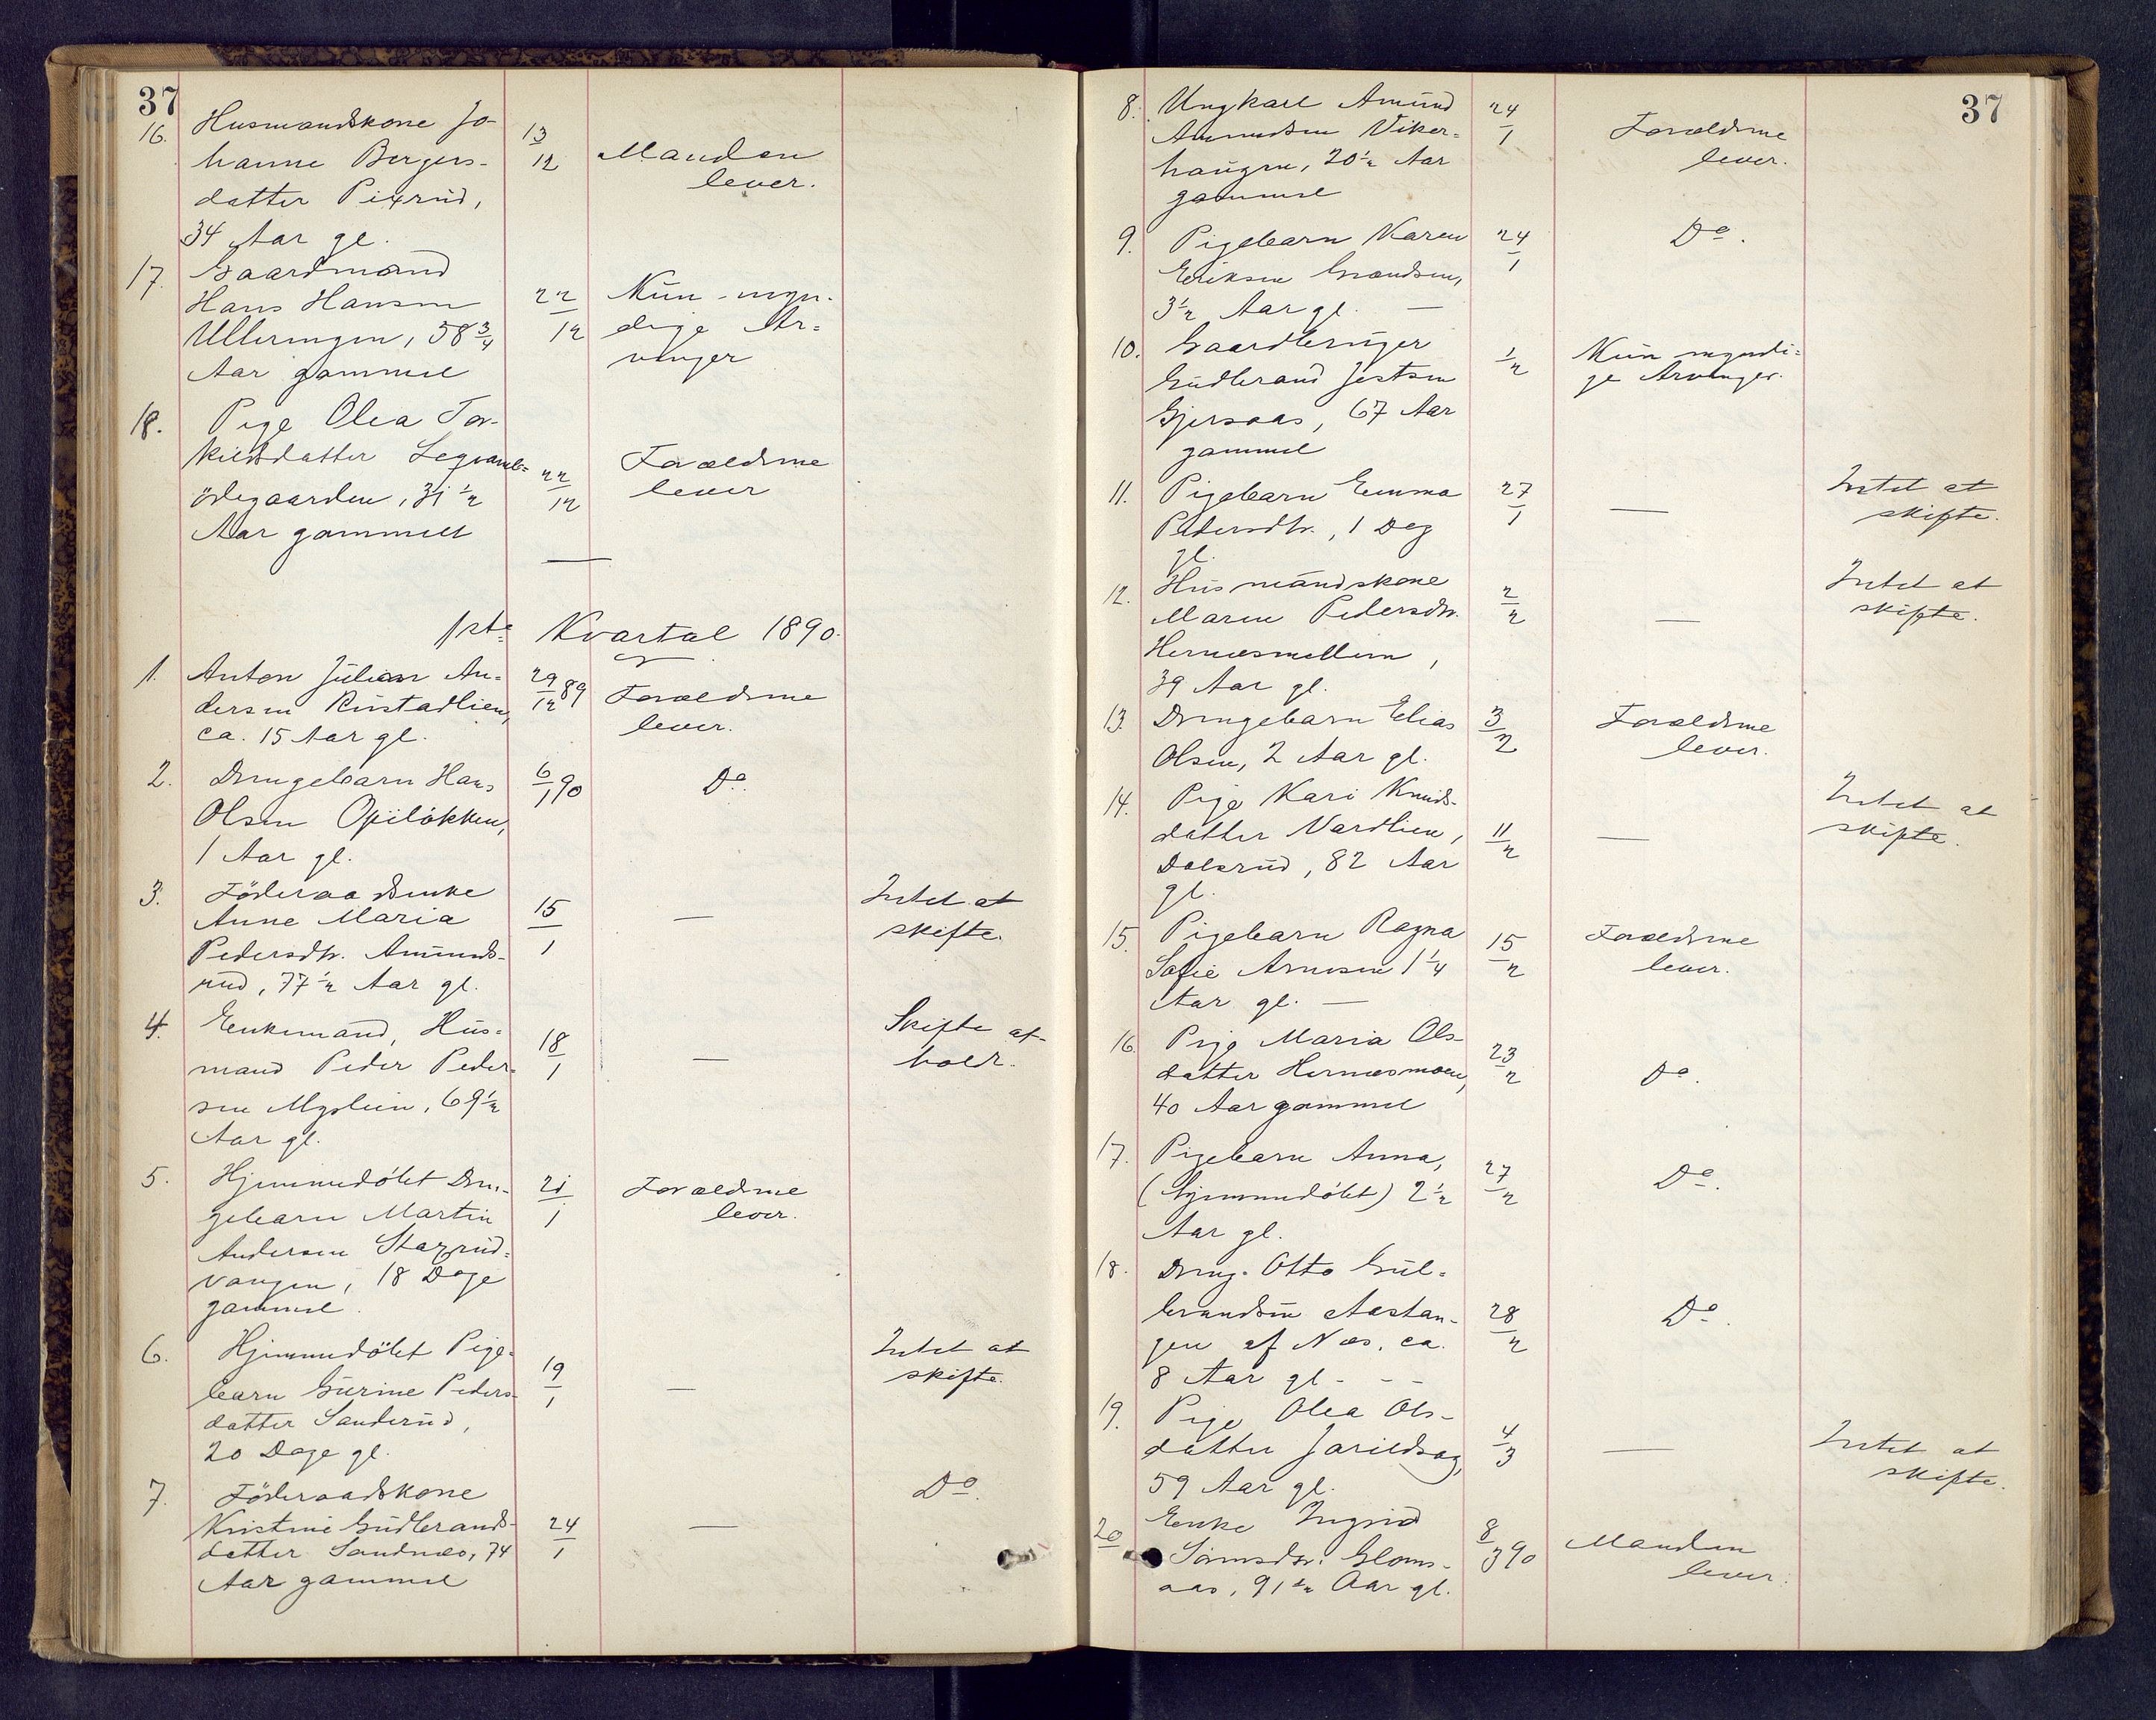 37
16. Husmandskone Jo-
hanne Bergers-
datter Pixrud,
34 Aar gl.
13/12
Manden
lever.
17. Gaardmand
Hans Hansen
Ulleringen, 58 3/4
Aar gammel
22/12
Kun myn-
dige Ar-
vinger
18. Pige Olea Tor-
kildsdatter
ödegaarden, 31 1/2
Aar gammel
22/12
Forældrene
lever
1ste Kvartal 1890.
1. Anton Julian An-
dersen Rustadlien,
ca. 15 Aar gl.
29/12 89
Forældrene
lever.
2. Drengebarn Hans
Olsen Opilökken,
1 Aar gl.
6/1 90
Do.
3. Föderaadsenke
Anne Maria
Pedersdtr. Amunds-
rud, 77 1/2 Aar gl.
15/1
—
Intet at
skifte.
4. Enkemand, Hus-
mand Peder Peder-
sen, 69 1/2
Aar gl.
18/1
—
Skifte af-
holdt.
5. Hjemmedöbt Dren-
gebarn Martin
Andersen Staxrud-
vangen, 18 Dage
gammel.
21/1
Forældrene
lever.
6. Hjemmedöbt Pige-
barn Gurine Peders-
datter Sanderud,
20 Dage gl.
19/1
—
Intet at
skifte.
7. Föderaadskone
Kristine Gudbrands-
datter Sandnæs, 74
Aar gammel
24/1
—
Do.
37
8. Ungkarl Amund
Amundsen Viker-
haugen, 20 1/2 Aar
gammel
24/1
Forældrene
lever.
9. Pigebarn Karen
Eriksen,
3 1/2 Aar gl. —
24/1
Do.
10. Gaardbruger
Gudbrand Jostsen
Gjersaas, 67 Aar
gammel
1/2
Kun myndi-
ge Arvinger.
11. Pigebarn Emma
Pedersdtr., 1 Dag
gl.
27/1
—
Intet at
skifte.
12. Husmandskone
Maren Pedersdtr.
Hernæsmellem,
39 Aar gl.
2/2
—
Intet at
skifte.
13. Drengebarn Elias
Olsen, 2 Aar gl.
3/2
Forældrene
lever.
14. Pige Kari Knuds-
datter Nordlien,
Dalsrud, 82 Aar
gl.
11/2
—
Intet at
skifte.
15. Pigebarn Ragna
Sofie Arnesen 1 1/4
Aar gl. —
15/2
Forældrene
lever.
16. Pige Maria Ols-
datter Hernæsmoen,
40 Aar gammel
23/2
Do.
17. Pigebarn Anna,
(hjemmedöbt) 2 1/2
Aar gl.
27/2
Do.
18. Dreng. Otto Gul-
brandsen Aastan-
gen af Næs, ca.
8 Aar gl. - -
28/2
Do.
19. Pige Olea Ols-
datter Jarildsag,
59 Aar gl.
4/3
—
Intet at
skifte.
20 Enke Ingrid
Simensdtr. Gloms-
aas, 91 1/2 Aar gl.
8/3 90
Manden
lever.